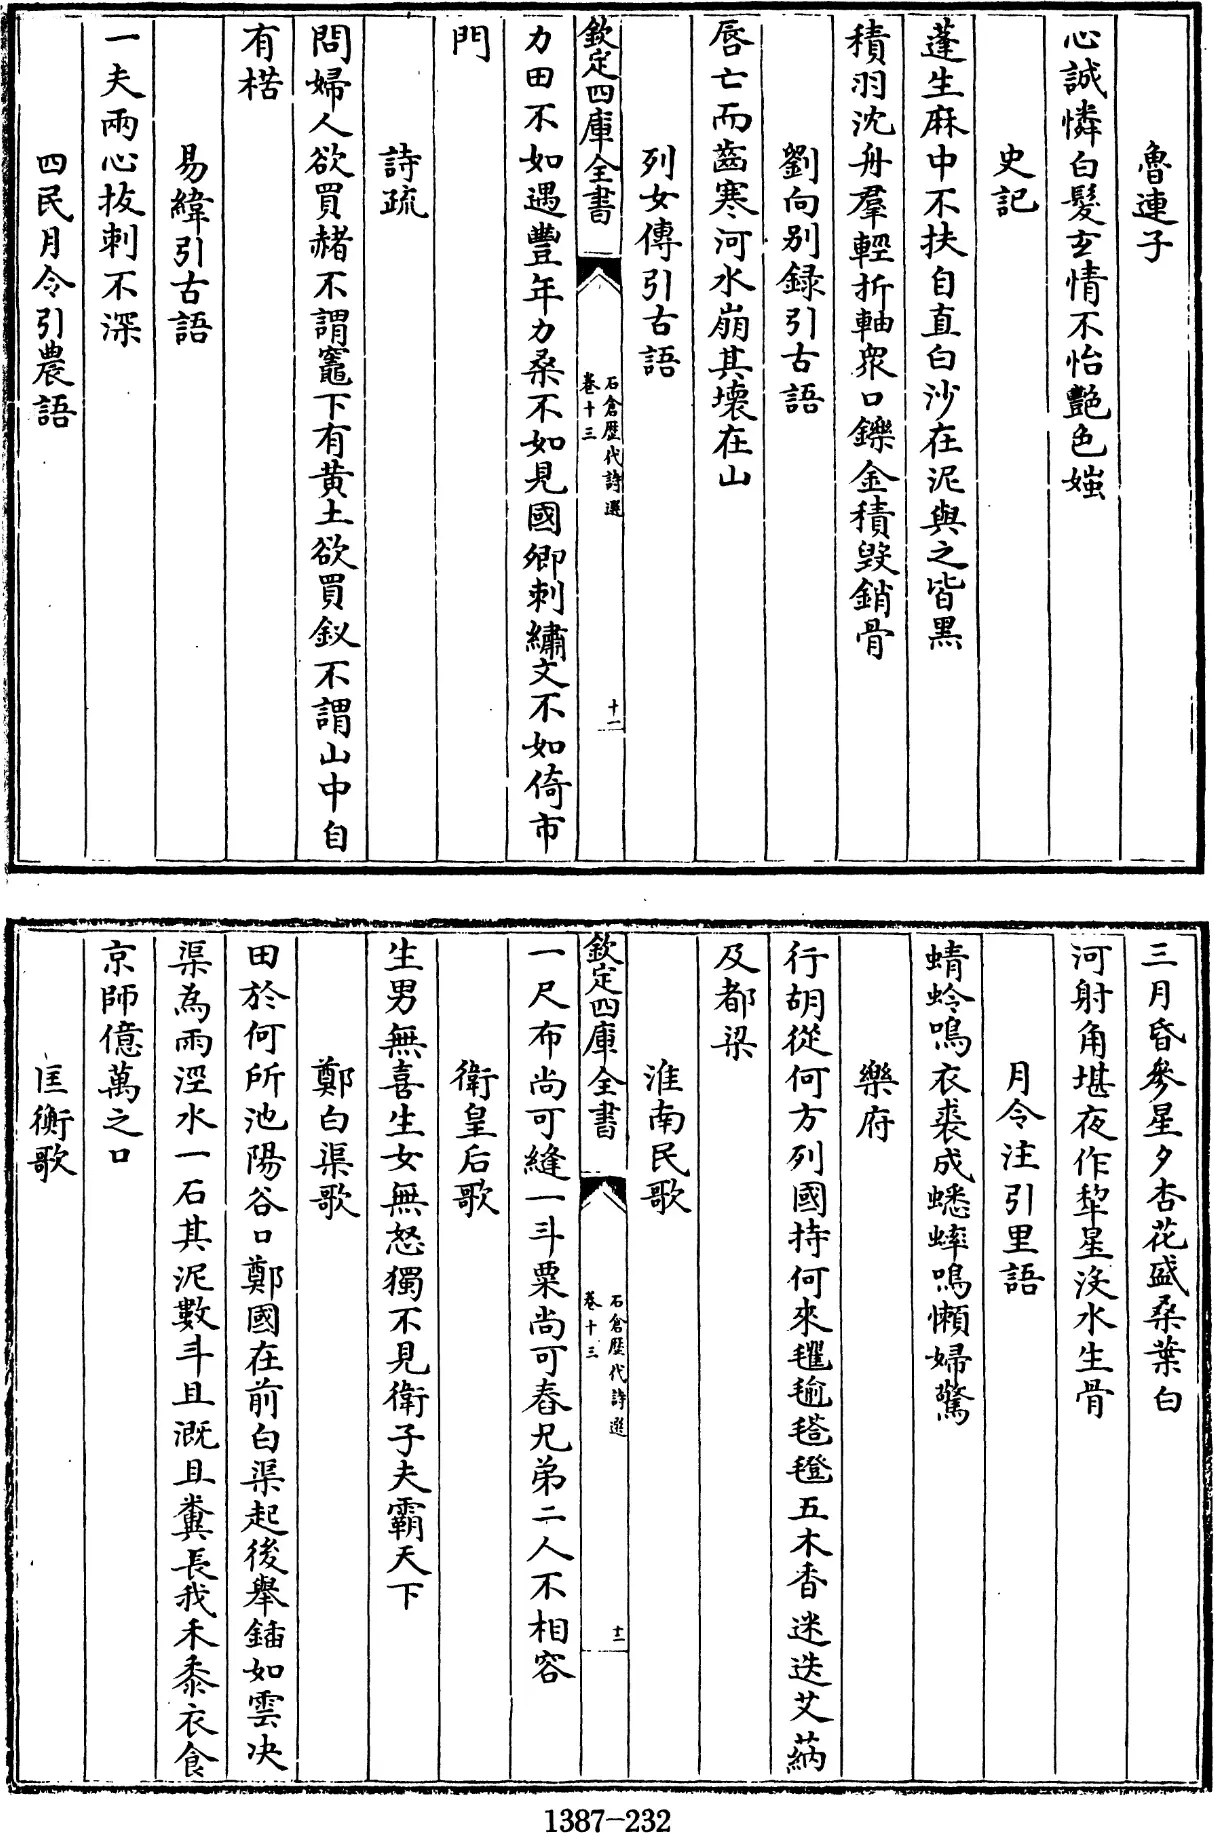 魯連子
心誠憐白髮玄情不怡艷色媸
史記
蓬生麻中不扶自直白沙在泥與之皆黑
積羽沈舟羣輕折軸衆口鑠金積毀銷骨
劉向别録引古語
唇亡而齒寒河水崩其壞在山
列女傳引古語
欽定四庫全書
石倉歷代詩選
卷十三
十二
力田不如遇豐年力桑不如見國卿刺繡文不如倚市
門
詩疏
問婦人欲買赭不謂竈下有黄土欲買釵不謂山中自
有楛
易緯引古語
一夫兩心拔刺不深
四民月令引農語
三月昏參星夕杏花盛桑葉白
河射角堪夜作犂星沒水生骨
月令注引里語
蜻蛉鳴衣裘成蟋蟀鳴懶婦驚
樂府
行胡從何方列國持何來氍毹毾㲪五木香迷迭艾蒳
及都梁
淮南民歌
欽定四庫全書
石倉歷代詩選
卷十三
十二
一尺布尚可縫一斗粟尚可舂兄弟二人不相容
衛皇后歌
生男無喜生女無怒獨不見衛子夫霸天下
鄭白渠歌
田於何所池陽谷口鄭國在前白渠起後舉鍤如雲决
渠為雨涇水一石其泥數斗且溉且糞長我禾黍衣食
京師億萬之口
匡衡歌
1387-232